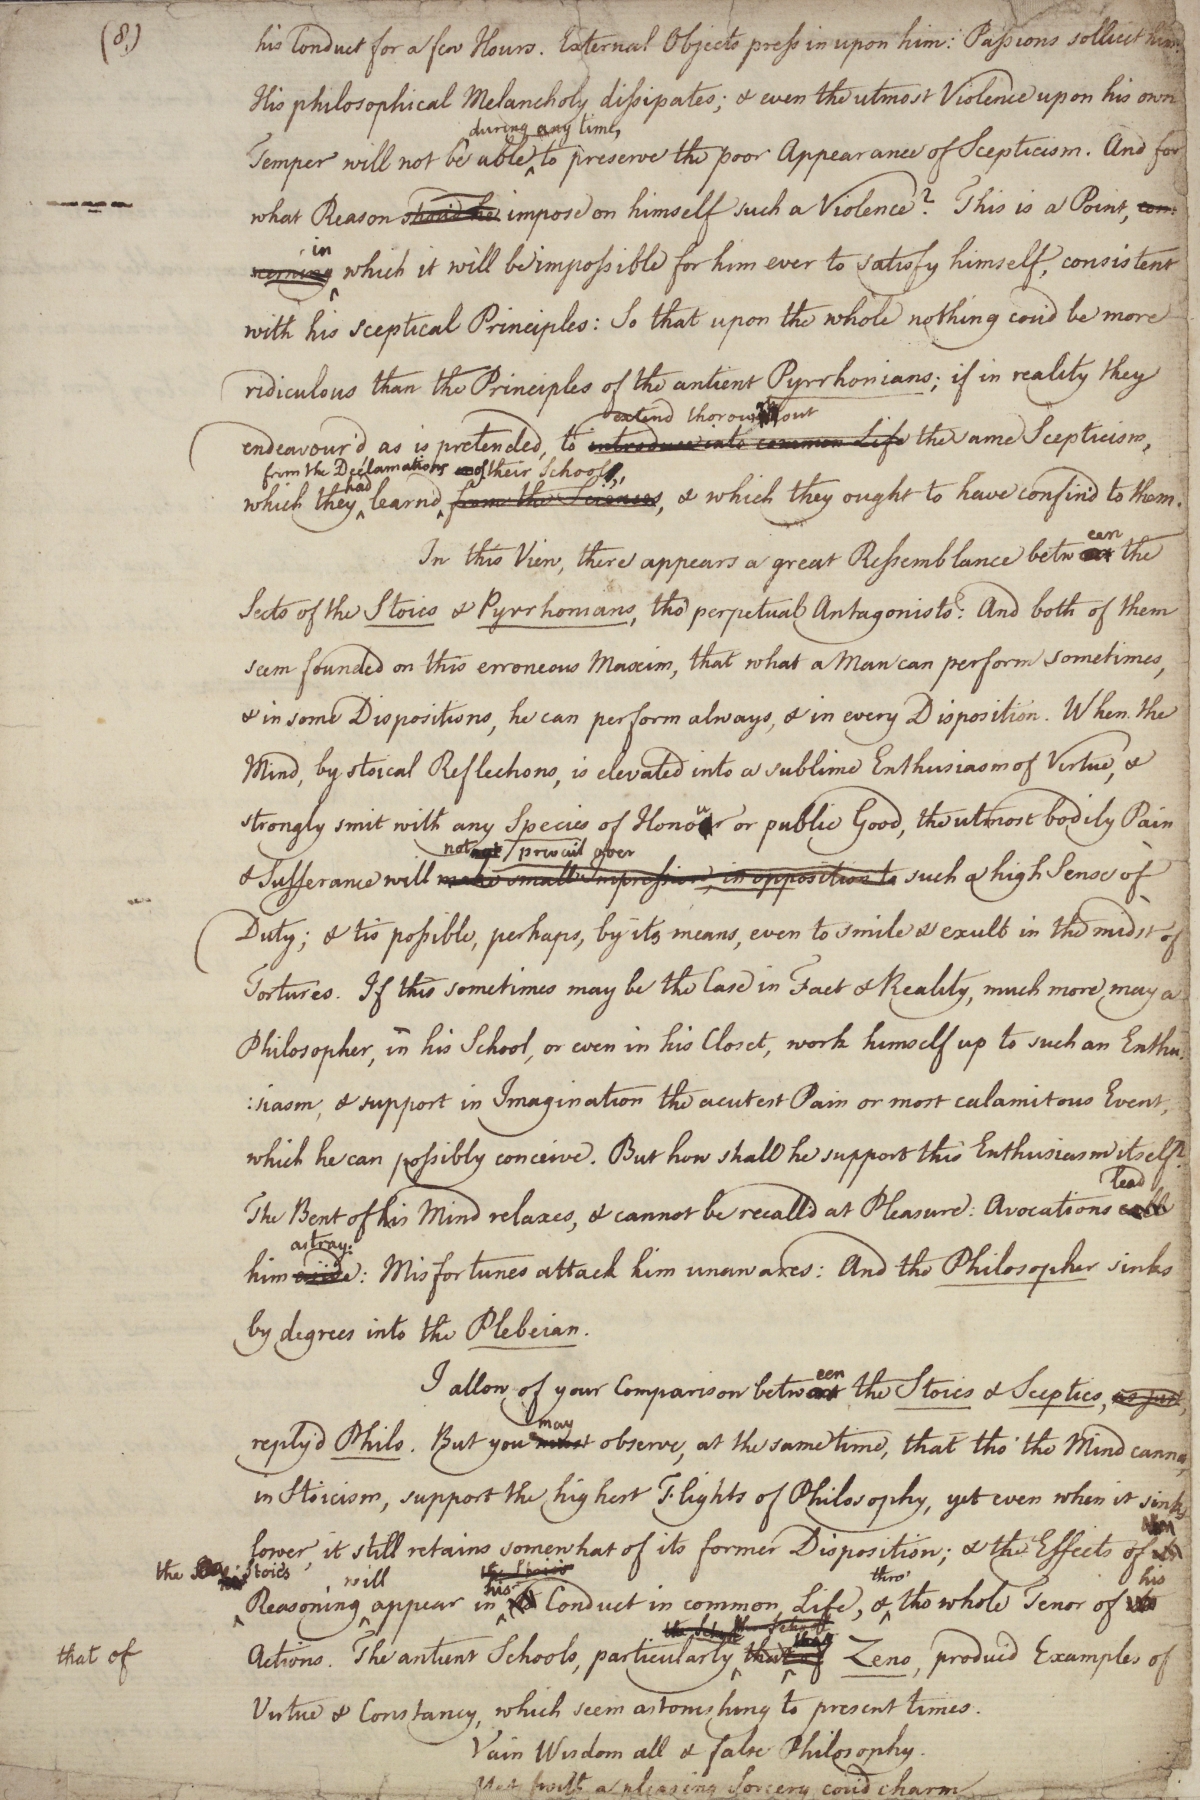 (8.)
his Conduct for a few Hours. External Objects press in upon him: Passions sollicit him:
His philosophical Melancholy dissipates; & even the utmost Violence upon his own
during any time,
Temper will not be able to preserve the poor Appearance of Scepticism. And for
what Reason shou'd he impose on himself such a Violence? This is a Point, con:
in
cerning which it will be impossible for him ever to satisfy himself, consistent
with his sceptical Principles: So that upon the whole nothing cou'd be more
ridiculous than the Principles of the antient Pyrrhonians; if in reality they
extend thorow out
endeavour'd as is pretended, to introduce into common Life the same Scepticism,
from the Declamations of their Schools,
had
which they learnd from the Sciences, & which they ought to have confin'd to them.
In this View, there appears a great Ressemblance betw
een
the
Sects of the Stoics & Pyrrhonians, tho' perpetual Antagonists: And both of them
seem founded on this erroneous Maxim, that what a Man can perform sometimes,
& in some Dispositions, he can perform always, & in every Disposition. When the
Mind, by stoical Reflections, is elevated into a sublime Enthusiasm of Virtue, &
strongly smit with any Species of Honour or public Good, the utmost bodily Pain
not prevail over
& Sufferance will make small Impression, in opposition to such a high Sense of
Duty; & tis possible, perhaps, by its means, even to smile & exult in the midst of
Tortures. If this sometimes may be the Case in Fact & Reality, much more may a
Philosopher, in his School, or even in his Closet, work himself up to such an Enthu:
:siasm, & support in Imagination the acutest Pain or most calamitous Event,
which he can possibly conceive. But how shall he support this Enthusiasm itself?
lead
The Bent of his Mind relaxes, & cannot be recall'd at Pleasure: Avocations call
astray:
him aside: Misfortunes attack him unawares: And the Philosopher sinks
by degrees into the Plebeian.
een
I allow of your Comparison betw the Stoics & Sceptics, as just,
may
reply'd Philo. But you must observe, at the same time, that tho' the Mind cannot,
in Stoicism, support the highest Flights of Philosophy, yet even when it sinks
lower, it still retains somewhat of its former Disposition; & the Effects of
the Stoics
will
the Stoics
his
thro'
his
Reasoning appear in Conduct in common Life, & tho whole Tenor of
that of
Actions. The antient Schools, particularly that of Zeno, produc'd Examples of
Virtue & Constancy, which seem astonishing to present times.
Vain Wisdom all & false Philosophy.
Yet with a pleasing Sorcery cou'd charm